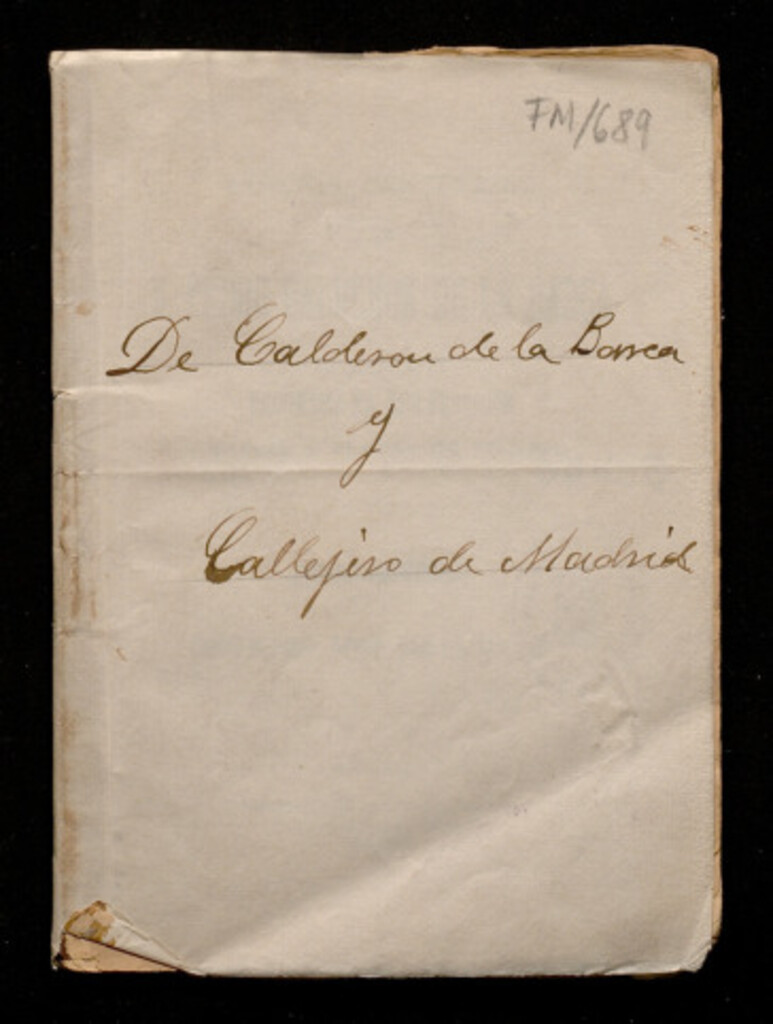 FM/689
De Calderon de la Barca
y
Callejero de Madrid